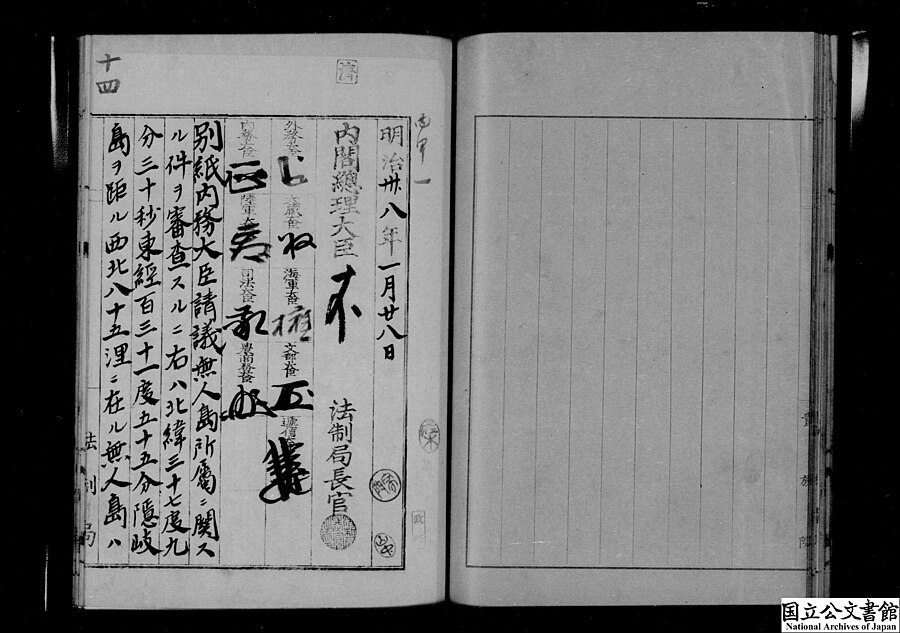 十四
明治卅八年一月廿八日
内閣總理大臣
法制局長官
外務大臣
大藏大臣
海軍大臣
文部大臣
遞信大臣
内務大臣
陸軍大臣
司法大臣
農商務大臣
別紙内務大臣請議無人島所屬ニ関ス
ル件ヲ審査スルニ右ハ北緯三十七度九
分三十秒東經百三十一度五十五分隱岐
島ヲ距ル西北八十五浬ニ在ル無人島ハ
法制局
国立公文書館
National Archives of Japan